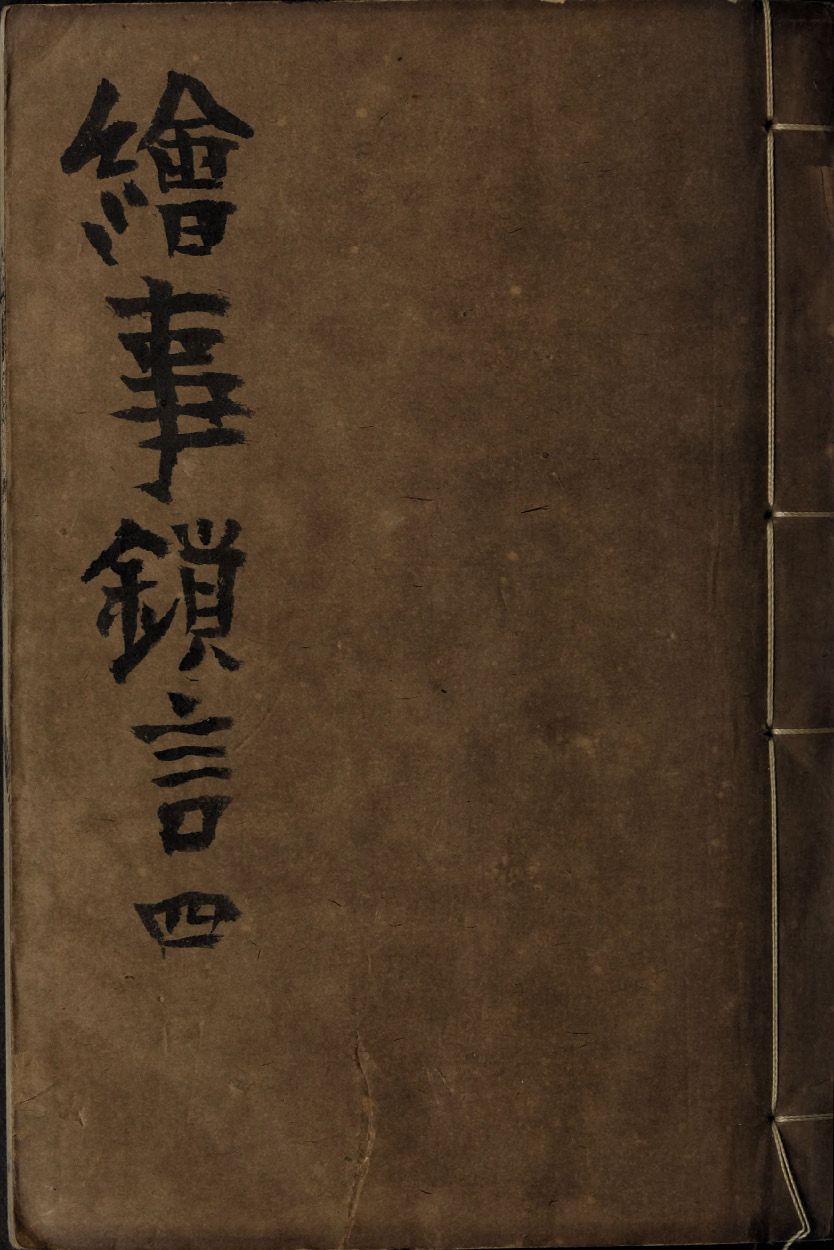 繪事鎖言 四